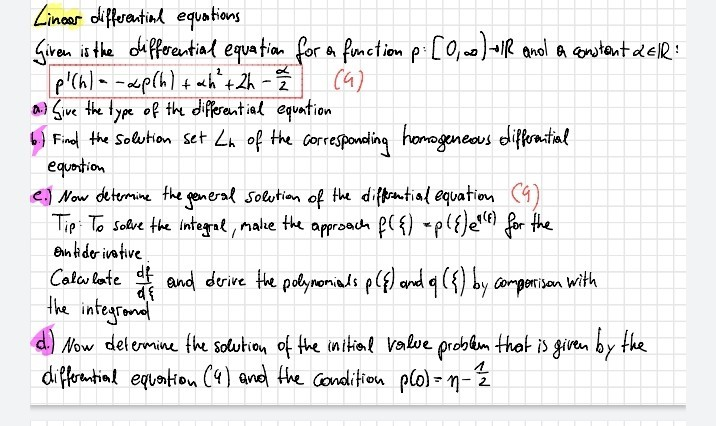 Linear differential equations
Given is the differential equation for a function p: [0,∞)→ℝ and a constant α∈ℝ:
p'(h) = -αp(h) + αh² + 2h - α/2 (4)
a.) Give the type of the differential equation
b.) Find the solution set Lh of the corresponding homogeneous differential
equation
c.) Now determine the general solution of the differential equation (4)
Tip: To solve the integral, make the approach f(ξ) = p(ξ)e^q(ξ) for the
antiderivative.
Calculate df/dξ and derive the polynomials p(ξ) and q(ξ) by comparison with
the integrand
d.) Now determine the solution of the initial value problem that is given by the
differential equation (4) and the condition p(0) = η - 1/2